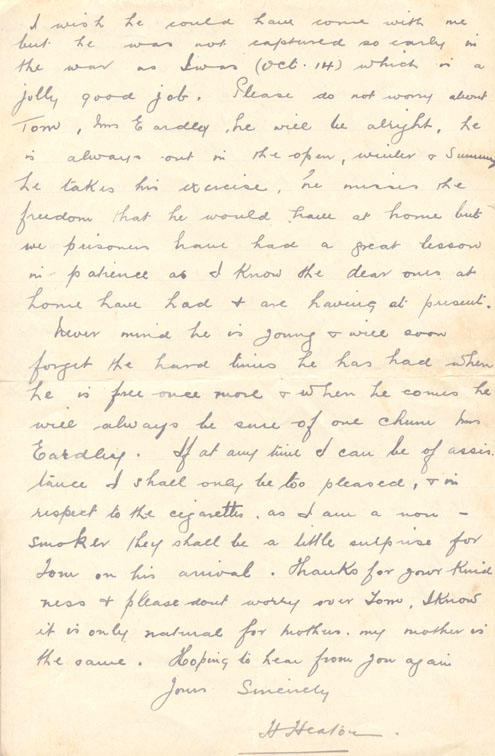 I wish he could have come with me
but he was not captured so early in
the war as I was (Oct. 14) which is a
jolly good job. Please do not worry about
Tom, Mrs Eardley, he will be alright, he
is always out in the open, winter & Summer
he takes his exercise, he misses the
freedom that he would have at home but
we prisoners have had a great lesson
in patience as I know the dear ones at
home have had & are having at present.
Never mind he is young & will soon
forget the hard times he has had when
he is free once more & when he comes he
will always be sure of one chum Mrs
Eardley. If at any time I can be of assis
tance I shall only be too pleased, & in
respect to the cigarettes. as I am a non -
smoker they shall be a little surprise for
Tom on his arrival. Thanks for your kind
ness & please dont worry over Tom, I know
it is only natural for mothers. my mother is
the same. Hoping to hear from you again
Yours Sincerely
H Heaton.